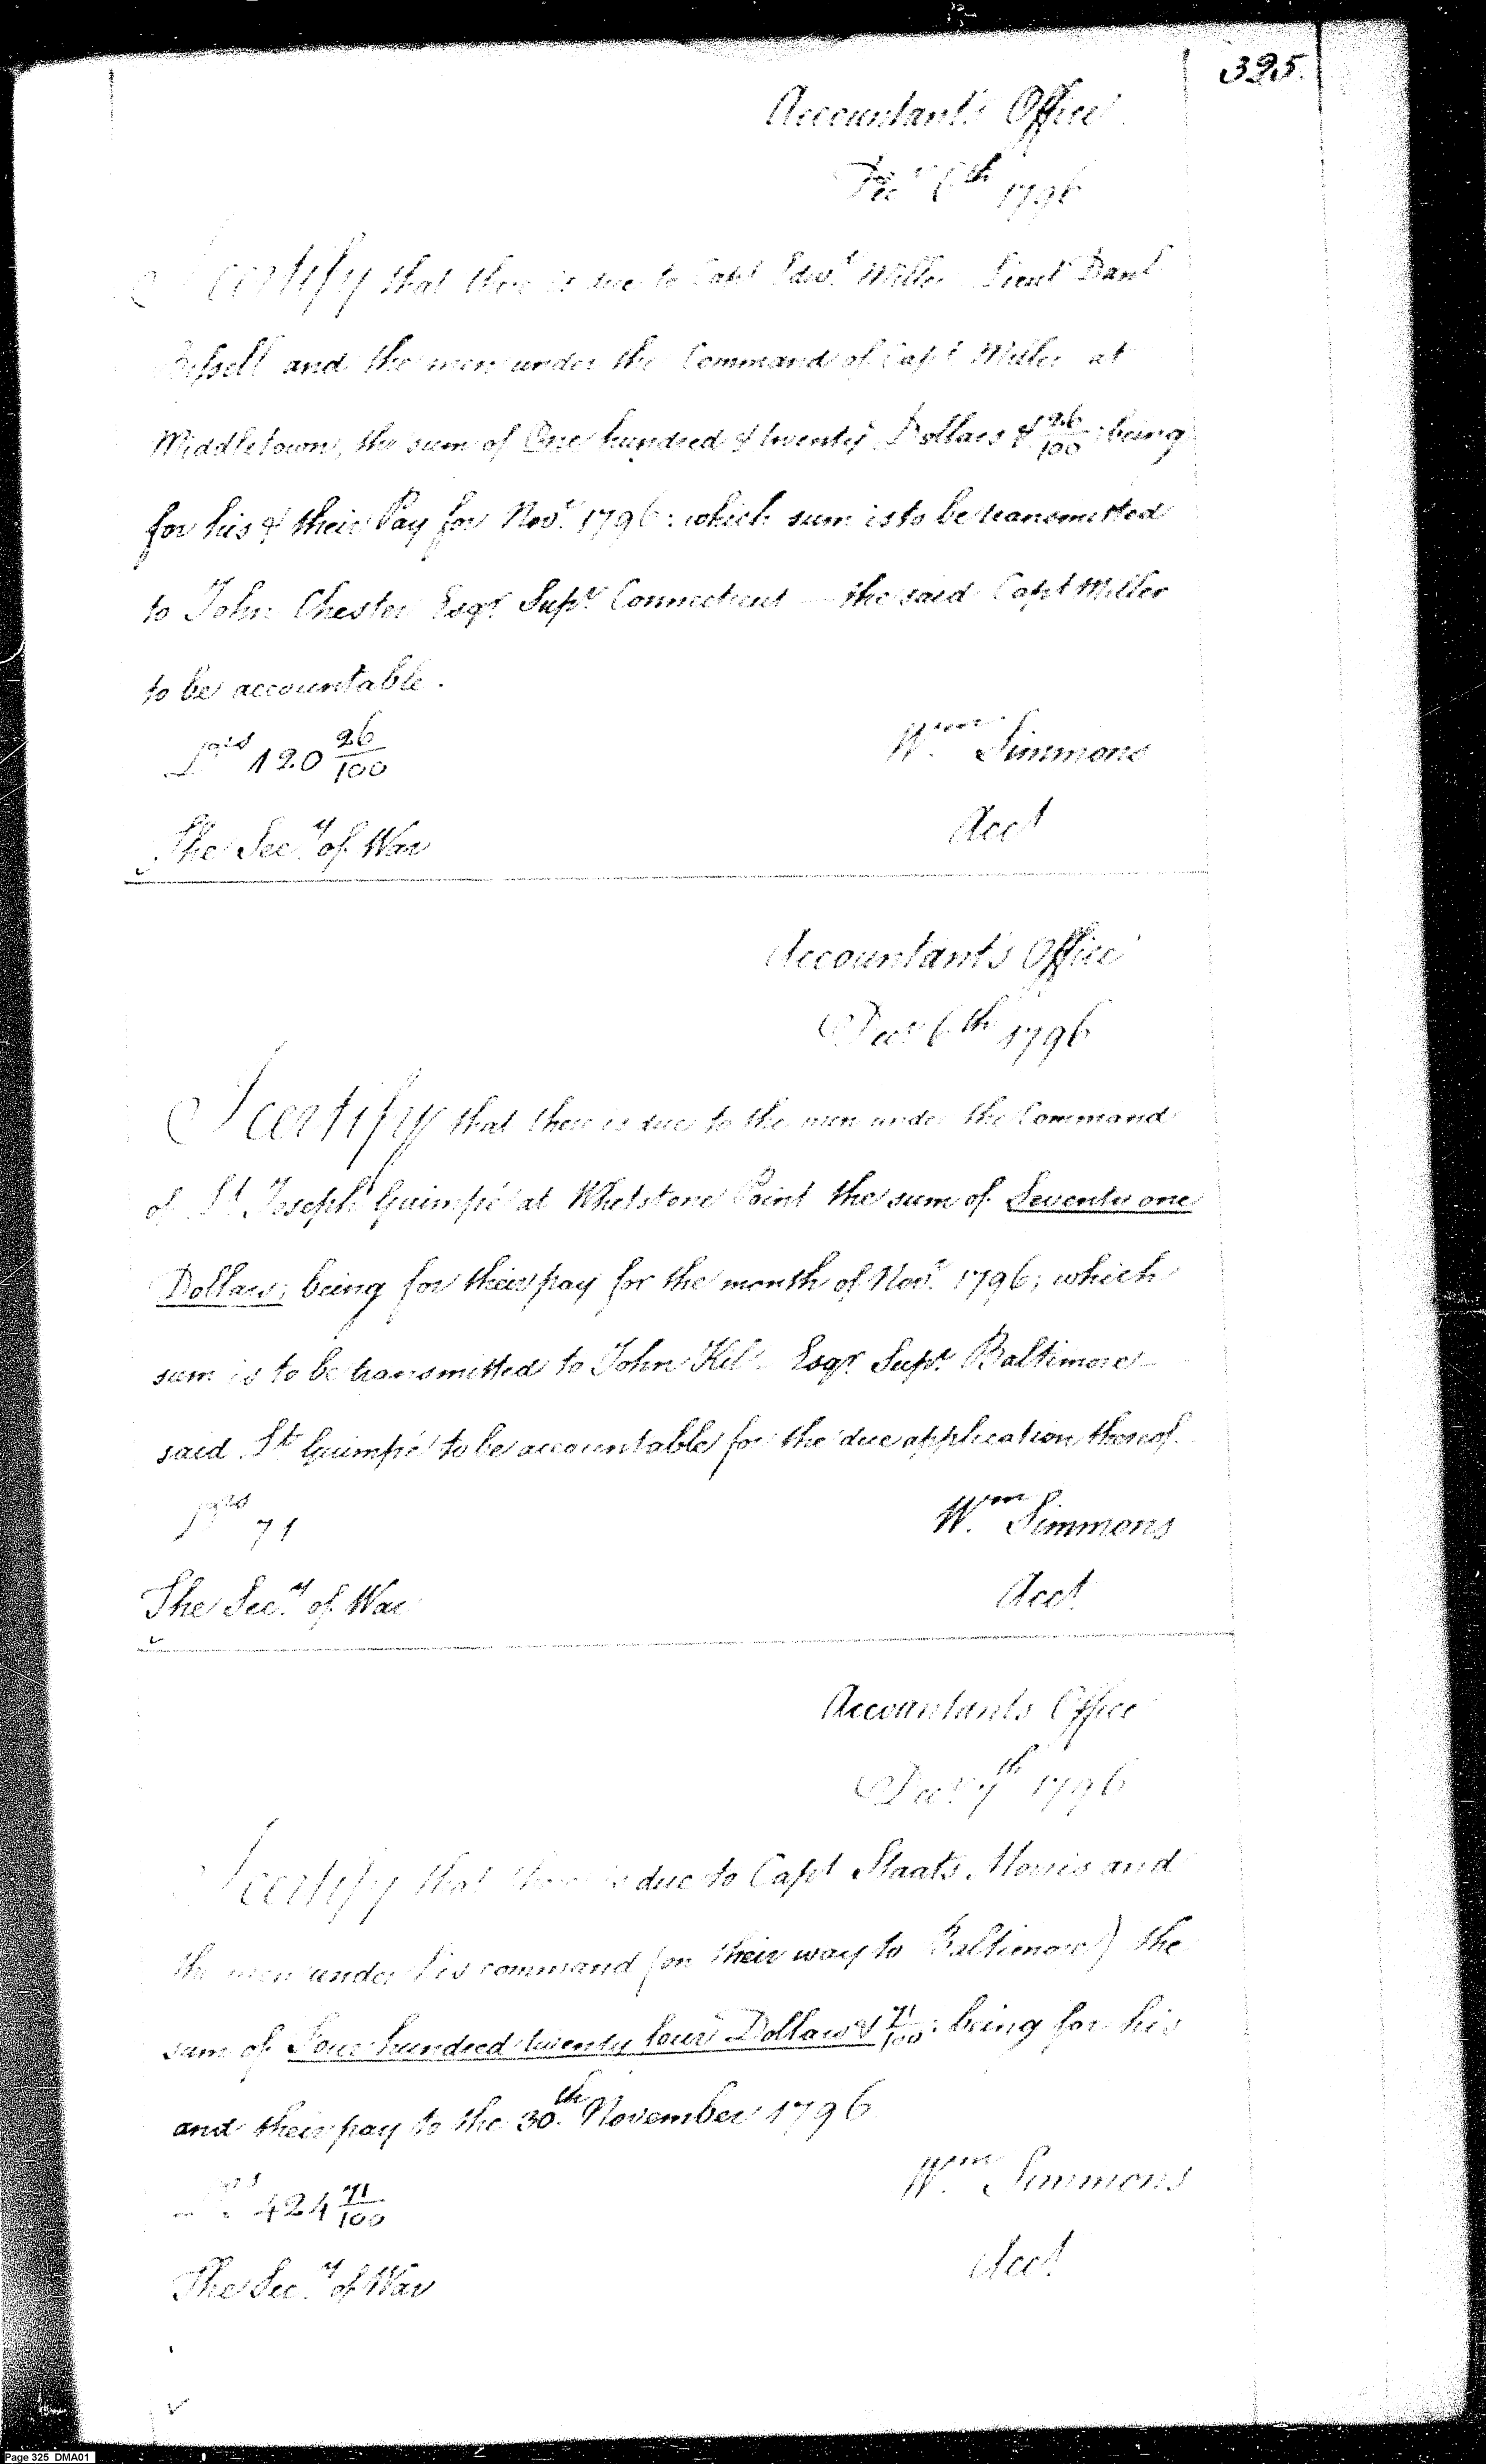 325.
Accountant's Office
Decr 6th 1796
I certify that there is due to Capt Edwd Miller Lieut Danl
Bissell and the men under the Command of Capt Miller at
Middletown, the sum of One hundred & twenty Dollars & 26/100 : being
for his & their Pay for Novr 1796 : which sum is to be transmitted
to John Chester Esqr Supr Connecticut — the said Capt Miller
to be accountable.
Drs 120 26/100
Wm Simmons
The Secy of War
Acct
Accountant's Office
Decr 6th 1796
I certify that there is due to the men under the Command
of Lt Joseph Guimpé at Whetstone Point the sum of Seventy one
Dollars; being for their pay for the month of Novr 1796; which
sum is to be transmitted to John Esqr Supr Baltimore —
said Lt Guimpé to be accountable for the due application thereof.
71
Wm Simmons
The Secy of War
Acct
Accountants Office
Decr 7th 1796
I certify that there is due to Capt Staats Morris and
the men under his command (on their way to Baltimore) the
sum of Four hundred twenty four Dollars & 71/100 : being for his
and their pay to the 30th November 1796
424 71/100
Wm Simmons
The Secy of War
Acct
Page 325 DMA01